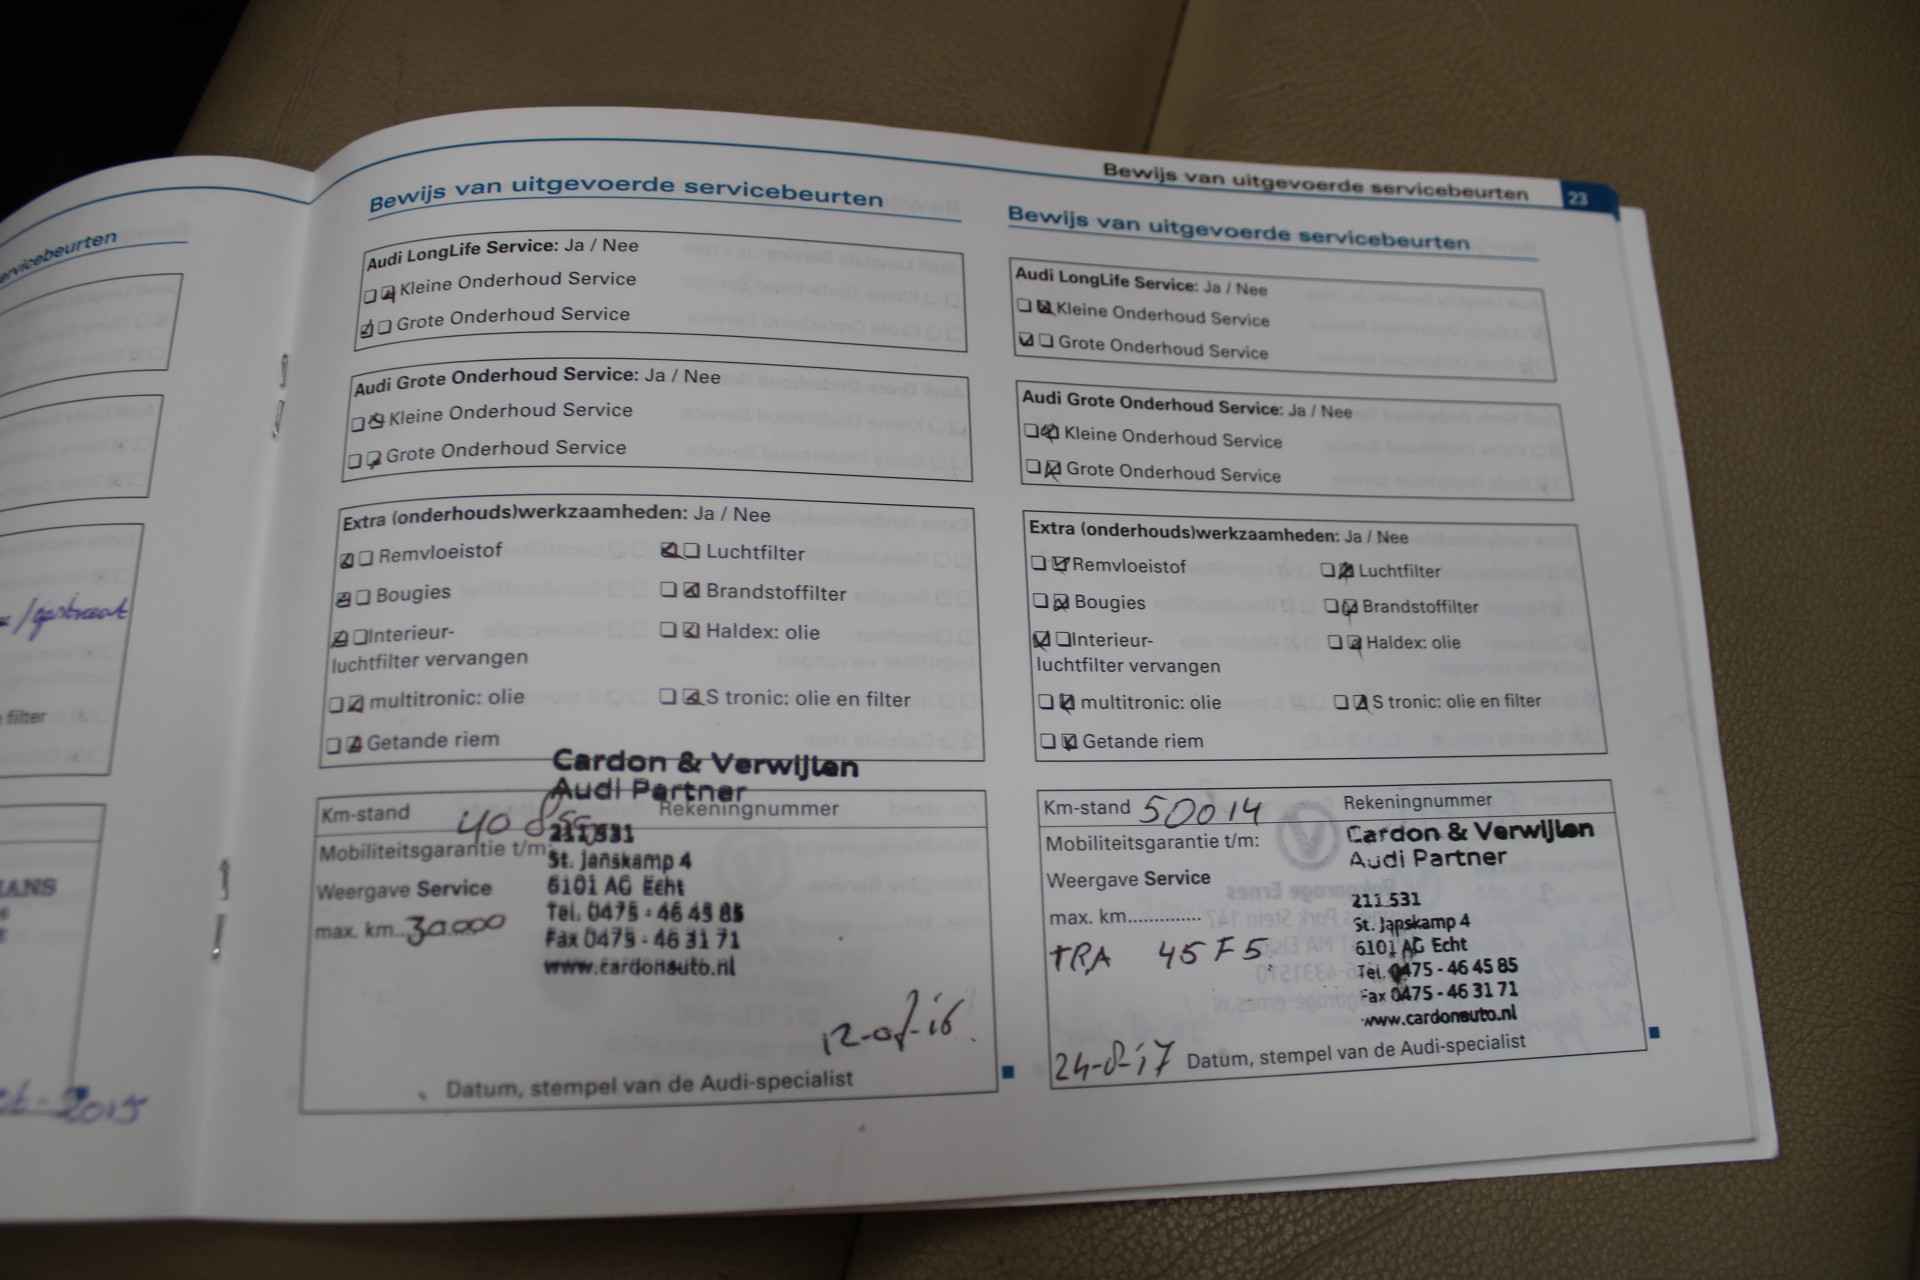 Bewijs van uitgevoerde servicebeurten 23
ervicebeurten
/gestreept
filter
IANS
2015
Bewijs van uitgevoerde servicebeurten
Audi LongLife Service: Ja / Nee
Kleine Onderhoud Service
Grote Onderhoud Service
Audi Grote Onderhoud Service: Ja / Nee
Kleine Onderhoud Service
Grote Onderhoud Service
Extra (onderhouds)werkzaamheden: Ja / Nee
Remvloeistof Luchtfilter
Bougies Brandstoffilter
Interieur- Haldex: olie
luchtfilter vervangen
multitronic: olie S tronic: olie en filter
Getande riem
Cardon & Verwijlen
Audi Partner
Km-stand Rekeningnummer
211 531
Mobiliteitsgarantie t/m:
St. Janskamp 4
Weergave Service
6101 AG Echt
Tel. 0475 - 46 45 85
max. km..30.000
Fax 0475 - 46 31 71
www.cardonauto.nl
Datum, stempel van de Audi-specialist
Bewijs van uitgevoerde servicebeurten
Audi LongLife Service: Ja / Nee
Kleine Onderhoud Service
Grote Onderhoud Service
Audi Grote Onderhoud Service: Ja / Nee
Kleine Onderhoud Service
Grote Onderhoud Service
Extra (onderhouds)werkzaamheden: Ja / Nee
Remvloeistof Luchtfilter
Bougies Brandstoffilter
Interieur- Haldex: olie
luchtfilter vervangen
multitronic: olie S tronic: olie en filter
Getande riem
Km-stand 50014 Rekeningnummer
Mobiliteitsgarantie t/m:
Cardon & Verwijlen
Audi Partner
Weergave Service
max. km..............
211 531
St. Janskamp 4
TRA 45F5
6101 AG Echt
Tel. 0475 - 46 45 85
Fax 0475 - 46 31 71
www.cardonauto.nl
24-8-17 Datum, stempel van de Audi-specialist